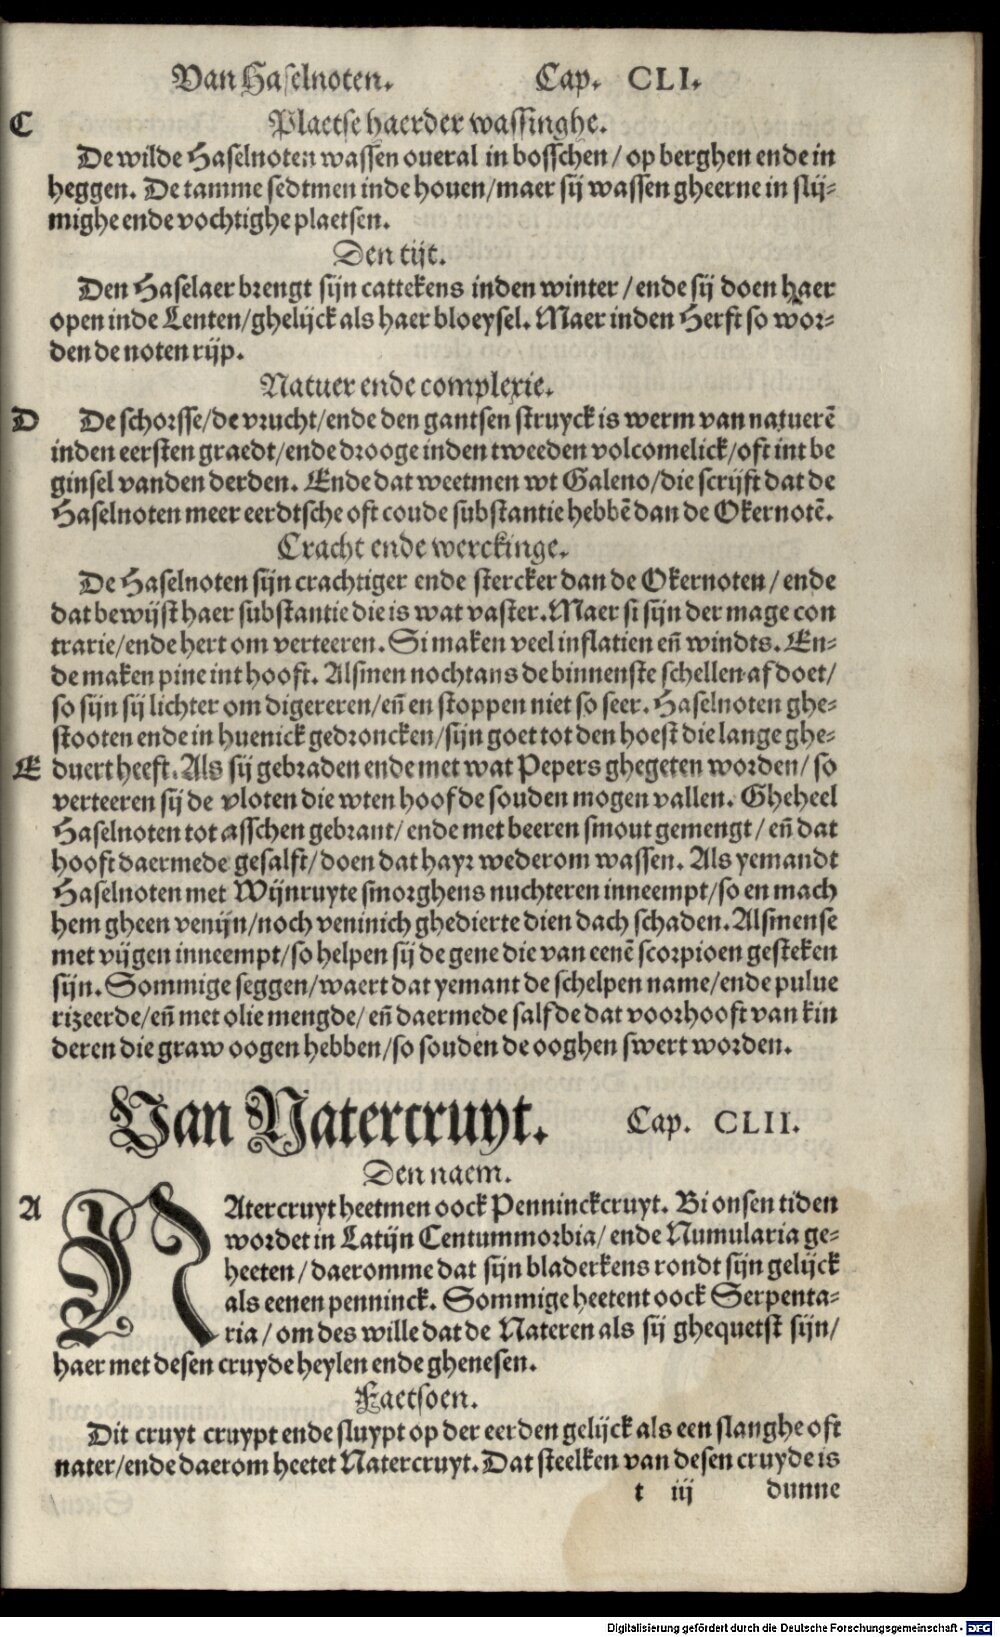 Van Haselnoten. Cap. CLI.
C Plaetse haerder wassinghe.
De wilde Haselnoten wassen oueral in bosschen / op berghen ende in
heggen. De tamme sedtmen inde houen/maer sij wassen gheerne in slij-
mighe ende vochtighe plaetsen.
Den tijt.
Den Haselaer brengt sijn cattekens inden winter / ende sij doen haer
open inde Lenten/ghelijck als haer bloeysel. Maer inden Herfst so wor-
den de noten rijp.
Natuer ende complexie.
D De schorsse/de vrucht/ende den gantsen struyck is werm van natuerē
inden eersten graedt/ende drooge inden tweeden volcomelick/oft int be
ginsel vanden derden. Ende dat weetmen wt Galeno/die scrijft dat de
Haselnoten meer eerdtsche oft coude substantie hebbē dan de Okernotē.
Cracht ende werckinge.
De Haselnoten sijn crachtiger ende stercker dan de Okernoten / ende
dat bewijst haer substantie die is wat vaster. Maer si sijn der mage con
trarie/ende hert om verteeren. Si maken veel inflatien eñ windts. En-
de maken pine int hooft. Alsmen nochtans de binnenste schellen af doet/
so sijn sij lichter om digereren/eñ en stoppen niet so seer. Haselnoten ghe-
stooten ende in huenick gedroncken/sijn goet tot den hoest die lange ghe-
E duert heeft. Als sij gebraden ende met wat Pepers ghegeten worden/ so
verteeren sij de vloten die wten hoofde souden mogen vallen. Gheheel
Haselnoten tot asschen gebrant/ ende met beeren smout gemengt / eñ dat
hooft daermede gesalft/ doen dat hayr wederom wassen. Als yemandt
Haselnoten met Wijnruyte smorghens nuchteren inneempt/so en mach
hem gheen venijn/noch veninich ghedierte dien dach schaden. Alsmense
met vijgen inneempt/so helpen sij de gene die van eenē scorpioen gesteken
sijn. Sommige seggen/waert dat yemant de schelpen name/ende pulue
rizeerde/eñ met olie mengde/ eñ daermede salfde dat voorhooft van kin
deren die graw oogen hebben/so souden de ooghen swert worden.
Van Natercruyt. Cap. CLII.
Den naem.
A NAtercruyt heetmen oock Penninckcruyt. Bi onsen tiden
wordet in Latijn Centummorbia/ ende Numularia ge-
heeten / daeromme dat sijn bladerkens rondt sijn gelijck
als eenen penninck. Sommige heetent oock Serpenta-
ria / om des wille dat de Nateren als sij ghequetst sijn/
haer met desen cruyde heylen ende ghenesen.
Faetsoen.
Dit cruyt cruypt ende sluypt op der eerden gelijck als een slanghe oft
nater/ende daerom heetet Natercruyt. Dat steelken van desen cruyde is
t iij dunne
Digitalisierung gefördert durch die Deutsche Forschungsgemeinschaft - DFG